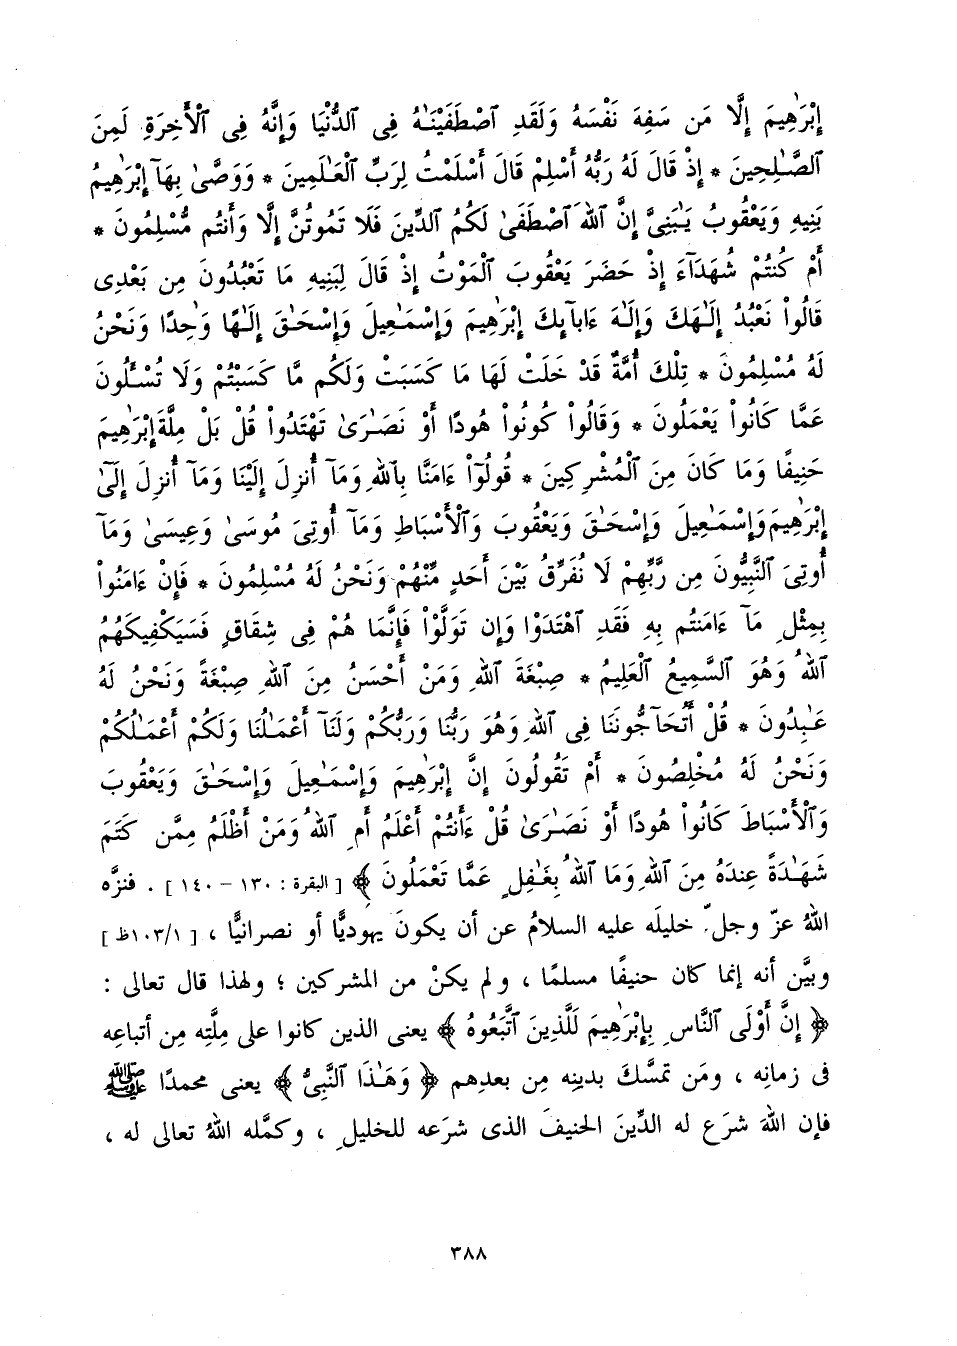 إِبْرَٰهِيمَ إِلَّا مَن سَفِهَ نَفْسَهُ وَلَقَدِ ٱصْطَفَيْنَـٰهُ فِى ٱلدُّنْيَا وَإِنَّهُ فِى ٱلْأَخِرَةِ لَمِنَ
ٱلصَّـٰلِحِينَ * إِذْ قَالَ لَهُ رَبُّهُ أَسْلِمْ قَالَ أَسْلَمْتُ لِرَبِّ ٱلْعَـٰلَمِينَ * وَوَصَّىٰ بِهَآ إِبْرَٰهِيمُ
بَنِيهِ وَيَعْقُوبُ يَـٰبَنِىَّ إِنَّ ٱللَّهَ ٱصْطَفَىٰ لَكُمُ ٱلدِّينَ فَلَا تَمُوتُنَّ إِلَّا وَأَنتُم مُّسْلِمُونَ *
أَمْ كُنتُمْ شُهَدَآءَ إِذْ حَضَرَ يَعْقُوبَ ٱلْمَوْتُ إِذْ قَالَ لِبَنِيهِ مَا تَعْبُدُونَ مِن بَعْدِى
قَالُوا۟ نَعْبُدُ إِلَـٰهَكَ وَإِلَـٰهَ ءَابَآئِكَ إِبْرَٰهِيمَ وَإِسْمَـٰعِيلَ وَإِسْحَـٰقَ إِلَـٰهًا وَٰحِدًا وَنَحْنُ
لَهُ مُسْلِمُونَ * تِلْكَ أُمَّةٌ قَدْ خَلَتْ لَهَا مَا كَسَبَتْ وَلَكُم مَّا كَسَبْتُمْ وَلَا تُسْـَٔلُونَ
عَمَّا كَانُوا۟ يَعْمَلُونَ * وَقَالُوا۟ كُونُوا۟ هُودًا أَوْ نَصَـٰرَىٰ تَهْتَدُوا۟ قُلْ بَلْ مِلَّةَ إِبْرَٰهِيمَ
حَنِيفًا وَمَا كَانَ مِنَ ٱلْمُشْرِكِينَ * قُولُوٓا۟ ءَامَنَّا بِٱللَّهِ وَمَآ أُنزِلَ إِلَيْنَا وَمَآ أُنزِلَ إِلَىٰٓ
إِبْرَٰهِيمَ وَإِسْمَـٰعِيلَ وَإِسْحَـٰقَ وَيَعْقُوبَ وَٱلْأَسْبَاطِ وَمَآ أُوتِىَ مُوسَىٰ وَعِيسَىٰ وَمَآ
أُوتِىَ ٱلنَّبِيُّونَ مِن رَّبِّهِمْ لَا نُفَرِّقُ بَيْنَ أَحَدٍ مِّنْهُمْ وَنَحْنُ لَهُ مُسْلِمُونَ * فَإِنْ ءَامَنُوا۟
بِمِثْلِ مَآ ءَامَنتُم بِهِ فَقَدِ ٱهْتَدَوا۟ وَإِن تَوَلَّوْا۟ فَإِنَّمَا هُمْ فِى شِقَاقٍ فَسَيَكْفِيكَهُمُ
ٱللَّهُ وَهُوَ ٱلسَّمِيعُ ٱلْعَلِيمُ * صِبْغَةَ ٱللَّهِ وَمَنْ أَحْسَنُ مِنَ ٱللَّهِ صِبْغَةً وَنَحْنُ لَهُ
عَـٰبِدُونَ * قُلْ أَتُحَآجُّونَنَا فِى ٱللَّهِ وَهُوَ رَبُّنَا وَرَبُّكُمْ وَلَنَآ أَعْمَـٰلُنَا وَلَكُمْ أَعْمَـٰلُكُمْ
وَنَحْنُ لَهُ مُخْلِصُونَ * أَمْ تَقُولُونَ إِنَّ إِبْرَٰهِيمَ وَإِسْمَـٰعِيلَ وَإِسْحَـٰقَ وَيَعْقُوبَ
وَٱلْأَسْبَاطَ كَانُوا۟ هُودًا أَوْ نَصَـٰرَىٰ قُلْ ءَأَنتُمْ أَعْلَمُ أَمِ ٱللَّهُ وَمَنْ أَظْلَمُ مِمَّن كَتَمَ
شَهَـٰدَةً عِندَهُ مِنَ ٱللَّهِ وَمَا ٱللَّهُ بِغَـٰفِلٍ عَمَّا تَعْمَلُونَ ﴾ [ البقرة : ١٣٠ - ١٤٠ ] . فنزَّه
اللهُ عزّ وجلّ خليلَه عليه السلامُ عن أن يكونَ يهوديًّا أو نصرانيًّا ، [ ١٠٣/١ظ ]
وبيَّن أنه إنما كان حنيفًا مسلمًا ، ولم يكنْ من المشركين ؛ ولهذا قال تعالى :
﴿ إِنَّ أَوْلَى ٱلنَّاسِ بِإِبْرَٰهِيمَ لَلَّذِينَ ٱتَّبَعُوهُ ﴾ يعنى الذين كانوا على مِلَّتِه مِن أتباعِه
فى زمانِه ، ومَن تمسَّكَ بدينِه مِن بعدِهم ﴿ وَهَـٰذَا ٱلنَّبِىُّ ﴾ يعنى محمدًا ﷺ
فإن اللهَ شرَع له الدِّينَ الحنيفَ الذى شرَعه للخليلِ ، وكمَّله اللهُ تعالى له ،
٣٨٨